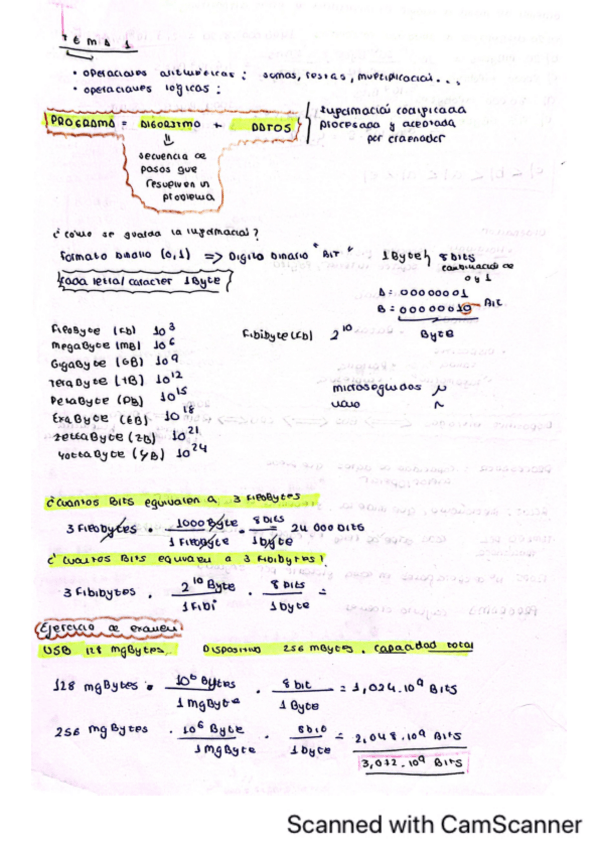 Tema 1
• operaciones aritméticas: sumas, restas, multiplicación...
• operaciones lógicas:
PROGRAMA = ALGORITMO + DATOS } información codificada
procesada y aceptada
por ordenador
⇓
secuencia de
pasos que
resuelven un
problema
¿cómo se guarda la información?
Formato binario (0,1) => Dígito binario "BIT" 1Byte } 8 bits
combinación de
0 y 1
cada letra/caracter 1Byte
A = 00000001
B = 00000010 Bit
Byte
KiloByte (kb) 10³
MegaByte (MB) 10⁶
GigaByte (GB) 10⁹
TeraByte (TB) 10¹²
PetaByte (PB) 10¹⁵
ExaByte (EB) 10¹⁸
ZettaByte (ZB) 10²¹
YottaByte (YB) 10²⁴
Kibibyte (Kb) 2¹⁰
microsegundos μ
nano n
¿cuántos Bits equivalen a 3 KiloBytes
3 Kilobytes · 1000 Byte / 1 KiloByte · 8 bits / 1 byte = 24 000 bits
¿cuántos Bits equivalen a 3 Kibibytes?
3 Kibibytes · 2¹⁰ Byte / 1 Kibi · 8 bits / 1 byte =
Ejercicio de examen
USB 128 mgBytes. Dispositivo 256 mBytes. capacidad total
128 mgBytes · 10⁶ Bytes / 1 mgByte · 8 bit / 1 Byte = 1,024.10⁹ Bits
256 mgBytes · 10⁶ Byte / 1 MgByte · 8 bit / 1 byte = 2,048.10⁹ Bits
3,072.10⁹ Bits
Scanned with CamScanner